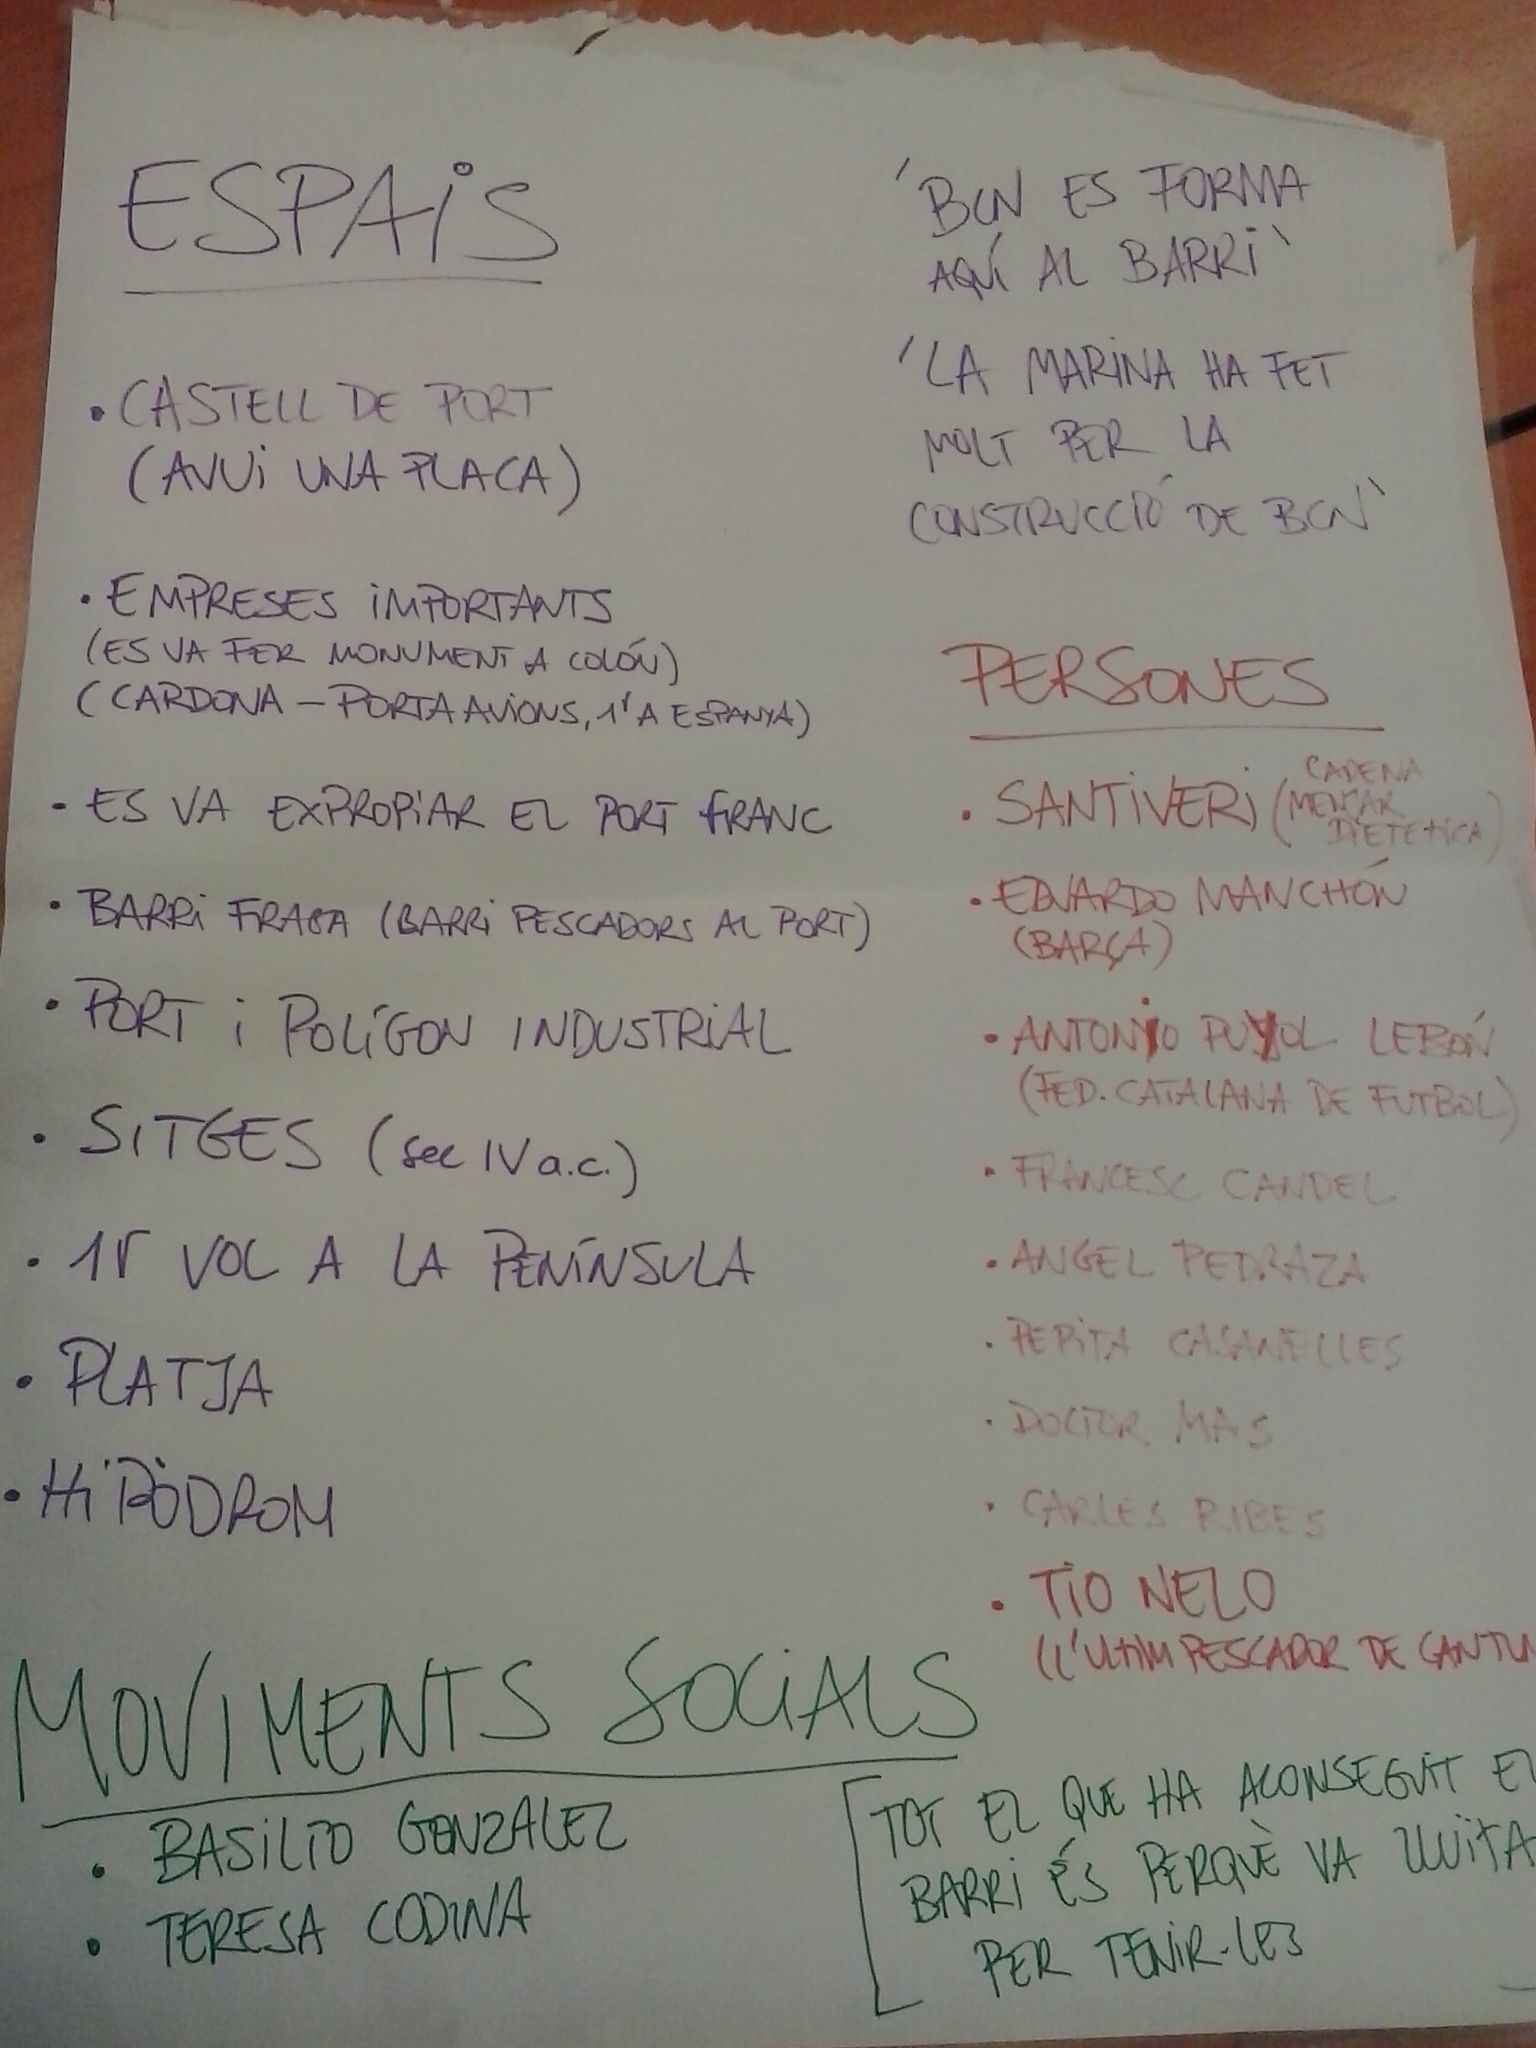 ESPAiS
• CASTELL DE PORT
(AVUi UNA PLACA)
• EMPRESES iMPORTANTS
(ES VA FER MONUMENT A COLÓN)
(CARDONA – PORTAAVIONS, 1r A ESPANYA)
• ES VA EXPROPiAR EL PORT FRANC
• BARRi (BARRi PESCADORS AL PORT)
• PORT i POLÍGON INDUSTRIAL
• SITGES (sec IV a.c.)
• 1r VOL A LA PENÍNSULA
• PLATJA
• HiPÒDROM
'BCN ES FORMA
AQUÍ AL BARRi'
'LA MARiNA HA FET
MOLT PER LA
CONSTRUCCIÓ DE BCN'
PERSONES
• SANTiVERi (CADENA
MENJAR
DIETETiCA)
• EDUARDO MANCHÓN
(BARÇA)
• ANTONiO PUYOL LEBÓN
(FED. CATALANA DE FUTBOL)
• FRANCESC CANDEL
• ANGEL PEDRAZA
• PEPiTA CASANELLES
• DOCTOR MAS
• CARLES RIBES
• TiO NELO
(L'ULTIM PESCADOR DE CANTUN
MOVIMENTS SOCiALS
• BASiLIO GONZALEZ
• TERESA CODINA
[TOT EL QUE HA ACONSEGUIT EL
BARRi ÉS PERQUÈ VA LLUITA
PER TENiR-LES